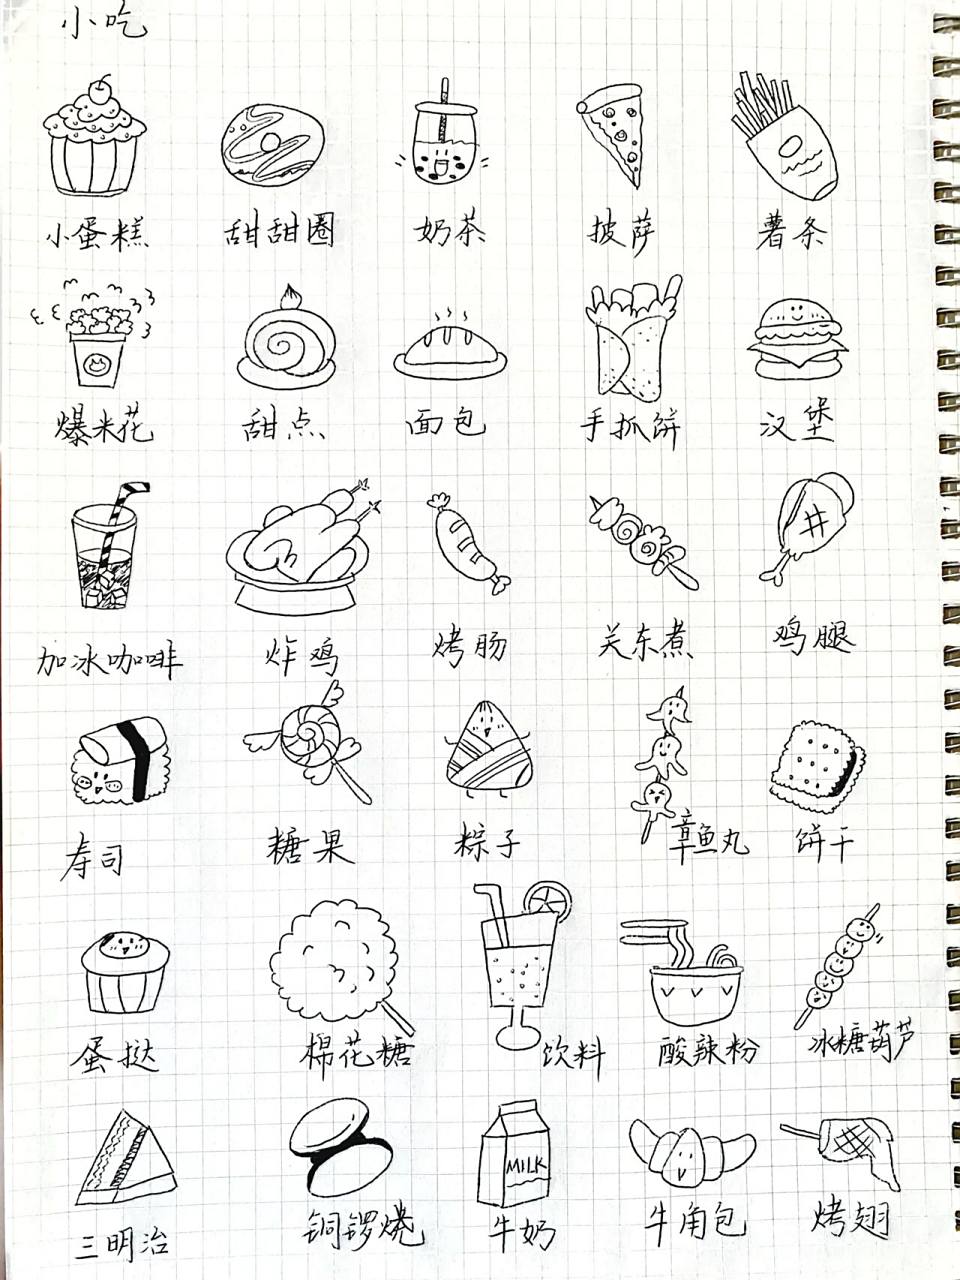 小吃
小蛋糕 甜甜圈 奶茶 披萨 薯条
爆米花 甜点 面包 手抓饼 汉堡
加冰咖啡 炸鸡 烤肠 关东煮 鸡腿
寿司 糖果 粽子 章鱼丸 饼干
蛋挞 棉花糖 饮料 酸辣粉 冰糖葫芦
MILK
三明治 铜锣烧 牛奶 牛角包 烤翅